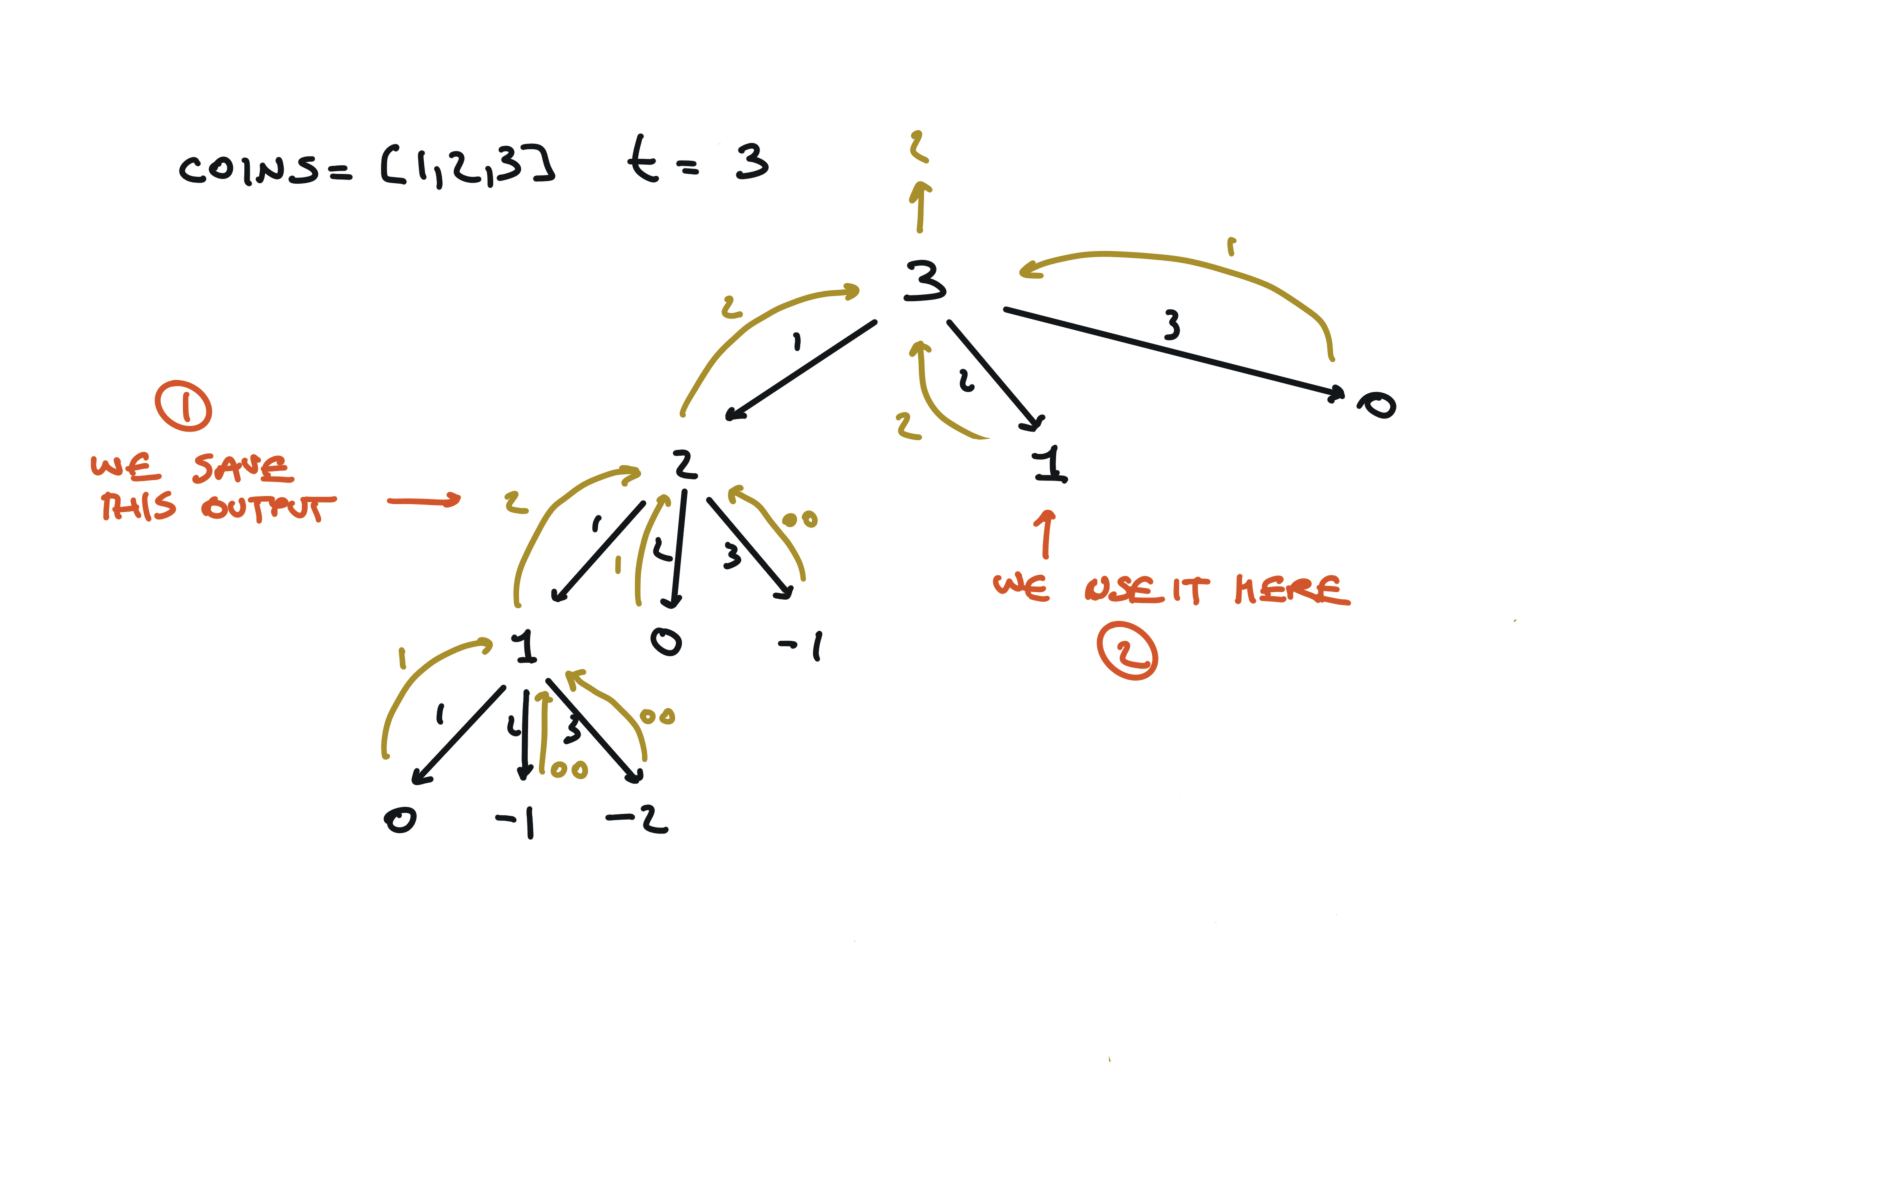 COINS= [1,2,3] t = 3
2
3
1
2
1
3
2
2
0
1
WE SAVE
THIS OUTPUT
2
1
1
2
3
∞
2
1
WE USE IT HERE
2
1
0
-1
1
1
2
3
∞
∞
0
-1
-2